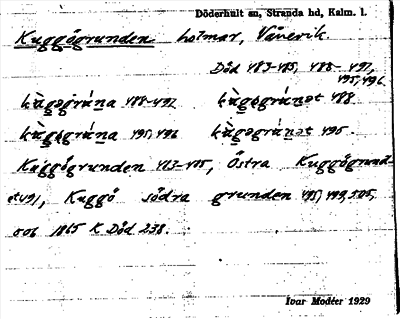 Döderhult sn, Stranda hd, Kalm. l.
Kuggögrunden holmar, Vånevik.
Död 483-485, 488-491,
495,496
kùgəgrúṇa 488-492 kùgəgrúṇət 488
kùgəgrúṇa 495,496 kùgəgrúṇət 495.
Kuggögrunden 483-485, Östra Kuggögrund-
et 491, Kuggö södra grunden 495, 499, 505,
506 1865 K Död 238.
Ivar Modéer 1929